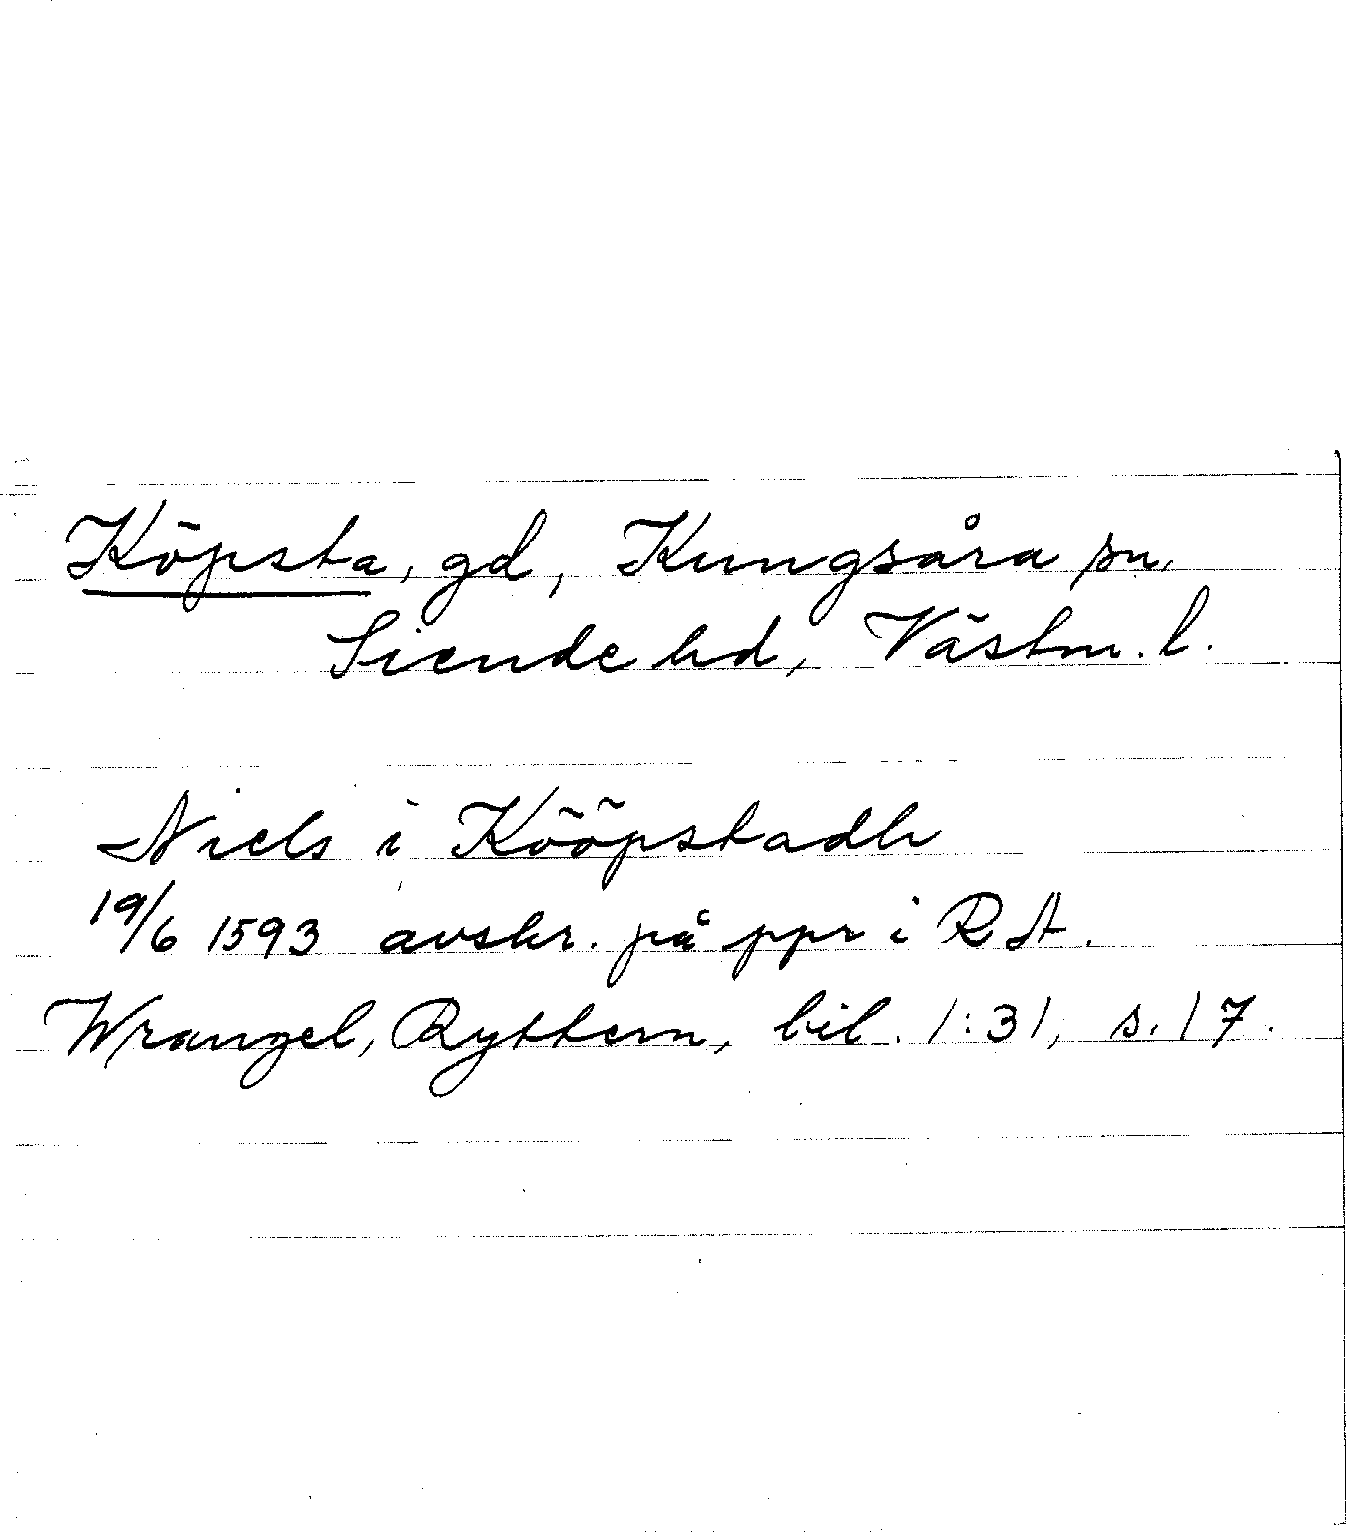 Köpsta, gd, Kungsåra sn,
Siende hd, Västm. l.
Niels i Kööpstadh
19/6 1593 avskr. på ppr i RA.
Wrangel, Ryttern, bil. 1:31, s. 17.